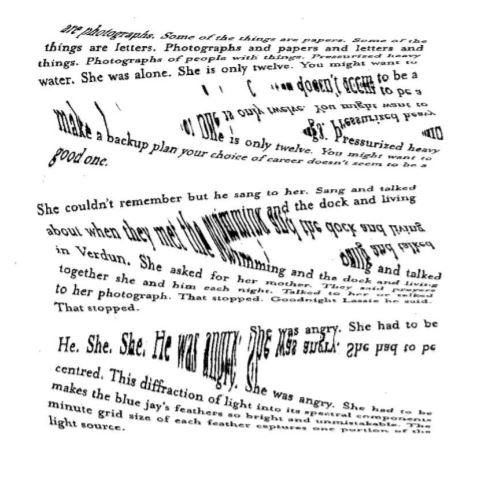 are photographs. Some of the things are papers. Some of the
things are letters. Photographs and papers and letters and
things. Photographs of people with things. Pressurized heavy
water. She was alone. She is only twelve. You might want to
doesn't seem to be a
is only twelve. You might want to
make a backup plan your choice of career doesn't seem to be a
She is only twelve. You might want to
Pressurized heavy
good one.
She couldn't remember but he sang to her. Sang and talked
about when they met the swimming and the dock and living
in Verdun. She asked for her mother. They said prayers
swimming and the dock and living
sang and talked
together she and him each night. Talked to her or talked
to her photograph. That stopped. Goodnight Lassie he said.
That stopped.
He. She. She. He was angry. She was angry. She had to be
She was angry. She had to be
centred. This diffraction of light into its spectral components
makes the blue jay's feathers so bright and unmistakable. The
minute grid size of each feather captures one portion of the
light source.